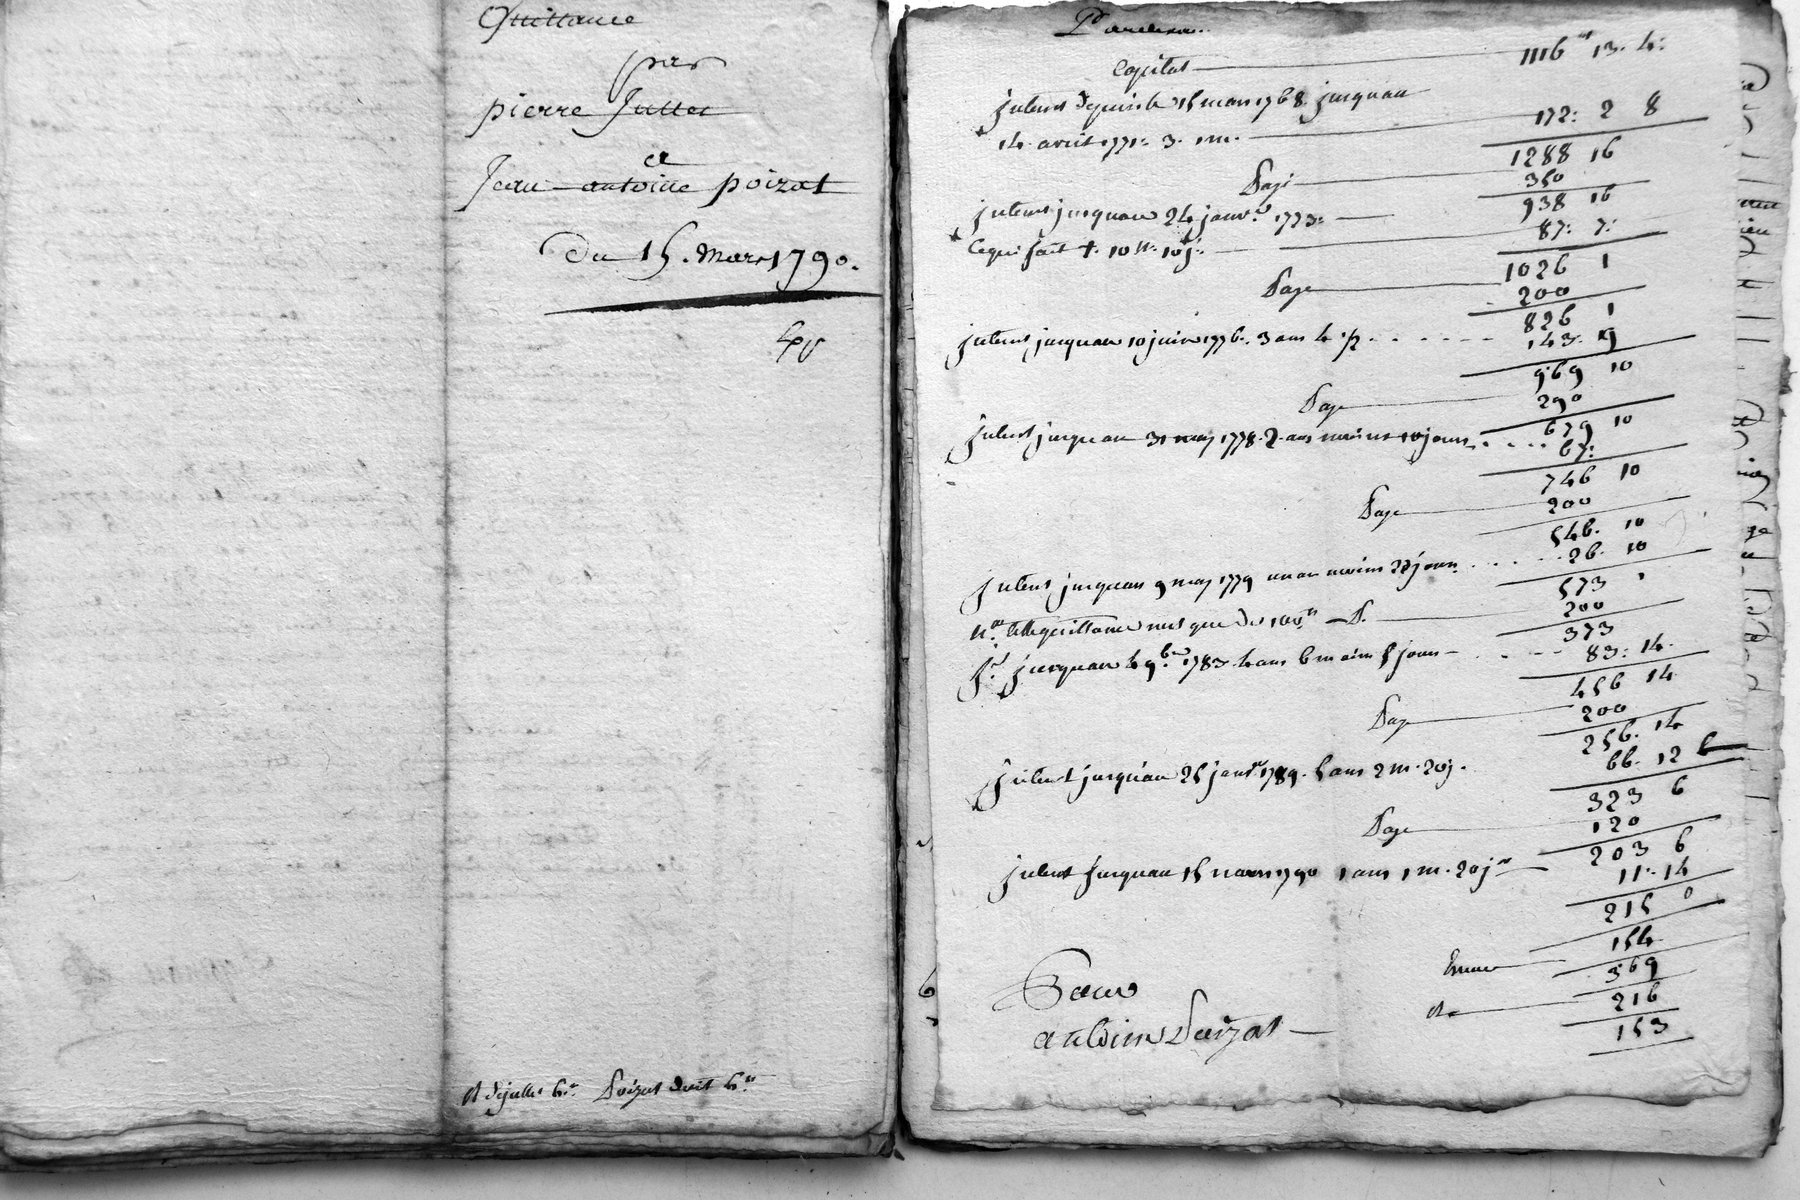 Quittance
par
pierre Jullet
a
Jean antoine poizat
Du 15. Mars 1790.
et de jullet 6.s Poizat doit 4.s
capital 1116 13. 4.
Interest depuis le 15 mars 1768. jusquau
14. avril 1771. 3. 1 m. 172: 2 8
1288 16
Payé 350
938 16
Interest jusquau 24 janv.r 1773:
Cequi fait 1. 10 m. 10 j. 87: 7:
1026 1
Paye 200
826 1
Interest jusquau 10 juin 1776. 3 ans 4 1/2 143. 9
969 10
Paye 290
679 10
Interest jusquau 31 may 1778. 2. ans moins 10 jours 67:
746 10
Paye 200
546. 10
Interest jusquau 9 may 1779 un an moins 22 jours 26. 10
573
N.a cette quittance nest que de 100 200
373
J.t jusquau 4 9.bre 1783. 4 ans 6 m moins 5 jours 83: 14.
456 14
Paye 200
256. 14
Interest jusquau 25 janv.r 1789. 5 ans 2 m. 20 j. 66. 12 6
323 6
Paye 120
203 6
Interest Jusquau 15 mars 1790 1 ans 1 m. 20 j.rs 11. 14
215 0
154
369
216
153
Jean
antoine Poizat